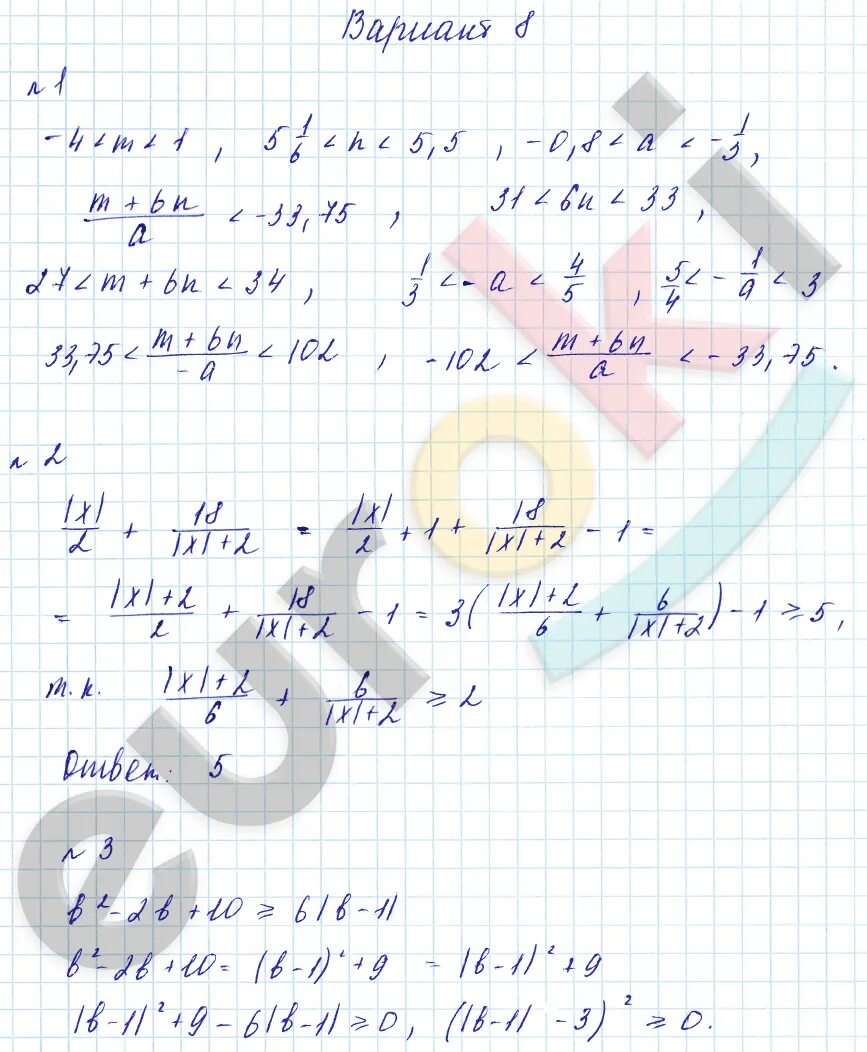 Вариант 8
n 1
-4 < m < 1 , 5 1/6 < n < 5,5 , -0,8 < a < -1/3 ,
(m + 6n)/a < -33,75 , 31 < 6n < 33 ,
27 < m + 6n < 34 , 1/3 < -a < 4/5 , 5/4 < -1/a < 3
33,75 < (m + 6n)/(-a) < 102 , -102 < (m + 6n)/a < -33,75 .
n 2
|x|/2 + 18/(|x|+2) = |x|/2 + 1 + 18/(|x|+2) - 1 =
= (|x|+2)/2 + 18/(|x|+2) - 1 = 3((|x|+2)/6 + 6/(|x|+2)) - 1 ≥ 5 ,
т.к. (|x|+2)/6 + 6/(|x|+2) ≥ 2
Ответ: 5
n 3
b² - 2b + 10 ≥ 6|b-1|
b² - 2b + 10 = (b-1)² + 9 = |b-1|² + 9
|b-1|² + 9 - 6|b-1| ≥ 0 , (|b-1| - 3)² ≥ 0.
euroki